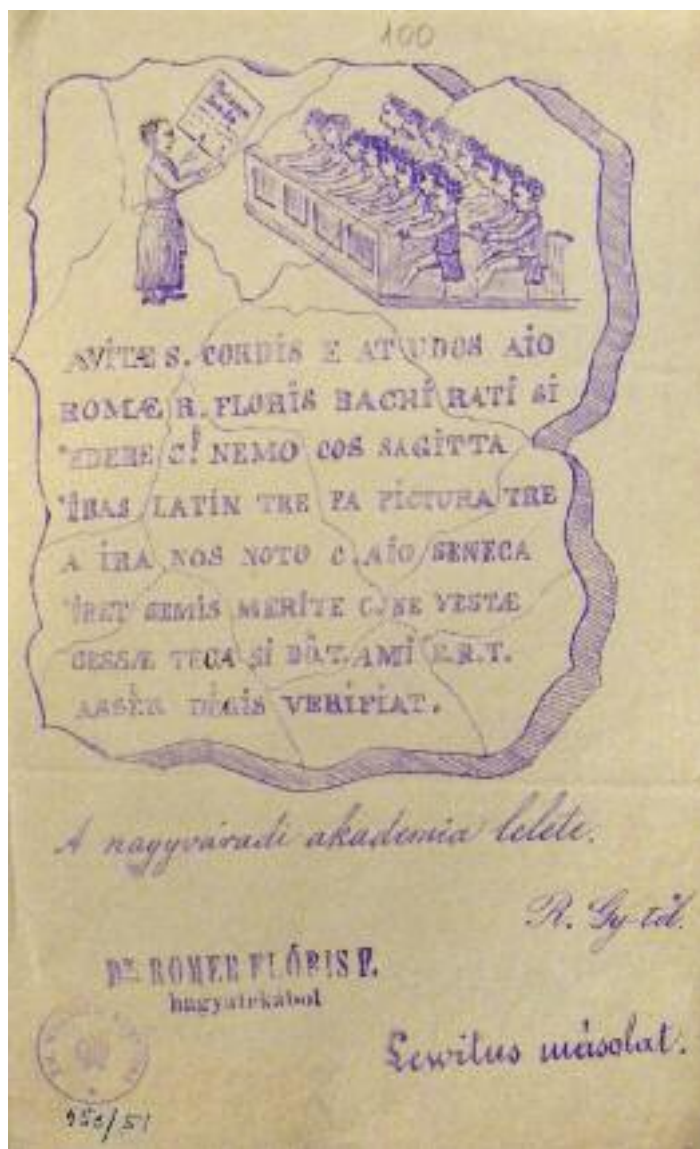 100
AVITÆ S. CORDIS E AT UDOS AIO
ROMÆ R. FLORIS BACHI RATI SI
C! NEMO COS SAGITTA
IRAS LATIN TRE PA PICTURA TRE
A IRA NOS NOTO C. AIO SENECA
IRET SEMIS MERITE C. NE VESTÆ
CESSÆ TECA SI BÔ.T. AMI E.R.T.
ASSÈR DÉGIS VERIFIAT.
A nagyváradi akademia lelete.
R. Gy-től.
DR. ROMER FLÓRIS F.
hagyatékából
Lewitus másolat.
950/51